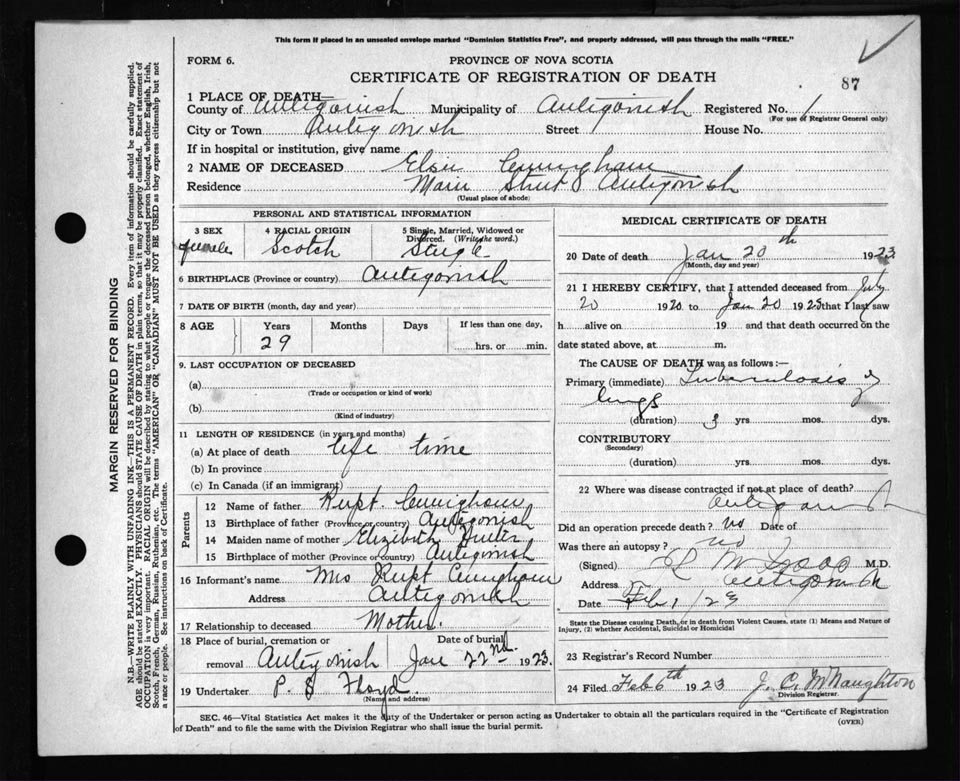 This form if placed in an unsealed envelope marked "Dominion Statistics Free", and properly addressed, will pass through the mails "FREE."
FORM 6.
PROVINCE OF NOVA SCOTIA
CERTIFICATE OF REGISTRATION OF DEATH
87
1 PLACE OF DEATH
County of Antigonish Municipality of Antigonish Registered No. 1
(For use of Registrar General only)
City or Town Antigonish Street House No.
If in hospital or institution, give name
2 NAME OF DECEASED Elsie Cunningham
Residence Main Street Antigonish
(Usual place of abode)
PERSONAL AND STATISTICAL INFORMATION
3 SEX 4 RACIAL ORIGIN 5 Single, Married, Widowed or Divorced. (Write the word.)
female Scotch Single
6 BIRTHPLACE (Province or country) Antigonish
7 DATE OF BIRTH (month, day and year)
8 AGE Years Months Days If less than one day,
29 hrs. or min.
9. LAST OCCUPATION OF DECEASED
(a)
(Trade or occupation or kind of work)
(b)
(Kind of industry)
11 LENGTH OF RESIDENCE (in years and months)
(a) At place of death life time
(b) In province
(c) In Canada (if an immigrant)
Parents
12 Name of father Rupt. Cunningham
13 Birthplace of father (Province or country) Antigonish
14 Maiden name of mother Elizibeth
15 Birthplace of mother (Province or country) Antigonish
16 Informant's name Mrs Rupt Cunningham
Address Antigonish
17 Relationship to deceased Mother.
18 Place of burial, cremation or removal Antigonish Date of burial Jan 22nd 1923.
19 Undertaker P. S Floyd.
(Name and address)
MEDICAL CERTIFICATE OF DEATH
20 Date of death Jan 20th 1923
(Month, day and year)
21 I HEREBY CERTIFY, that I attended deceased from July
20 1920 to Jan 20 1923 that I last saw
h alive on 19 and that death occurred on the
date stated above, at m.
The CAUSE OF DEATH was as follows:—
Primary (immediate) Tuberculosis of
lungs
(duration) 3 yrs. mos. dys.
CONTRIBUTORY
(Secondary)
(duration) yrs. mos. dys.
22 Where was disease contracted if not at place of death?
Antigonish
Did an operation precede death? no Date of
Was there an autopsy? no
(Signed) M.D.
Address Antigonish
Date Feb 1/23
State the Disease causing Death, or in death from Violent Causes, state (1) Means and Nature of
Injury, (2) whether Accidental, Suicidal or Homicidal
23 Registrar's Record Number
24 Filed Feb 6th 1923 J. C. McNaughton
Division Registrar.
SEC. 46—Vital Statistics Act makes it the duty of the Undertaker or person acting as Undertaker to obtain all the particulars required in the "Certificate of Registration
of Death" and to file the same with the Division Registrar who shall issue the burial permit.
(OVER)
MARGIN RESERVED FOR BINDING
N.B.—WRITE PLAINLY WITH UNFADING INK—THIS IS A PERMANENT RECORD. Every item of information should be carefully supplied.
AGE should be stated EXACTLY. PHYSICIANS should STATE CAUSE OF DEATH in plain terms, so that it may be properly classified. Exact statement of
OCCUPATION is very important. RACIAL ORIGIN will be described by stating to what people or tongue the deceased person belonged, whether English, Irish,
Scotch, French, German, Russian, Ruthenian, etc. The terms "AMERICAN" OR "CANADIAN" MUST NOT BE USED as they express citizenship but not
a race or people. See instructions on back of Certificate.